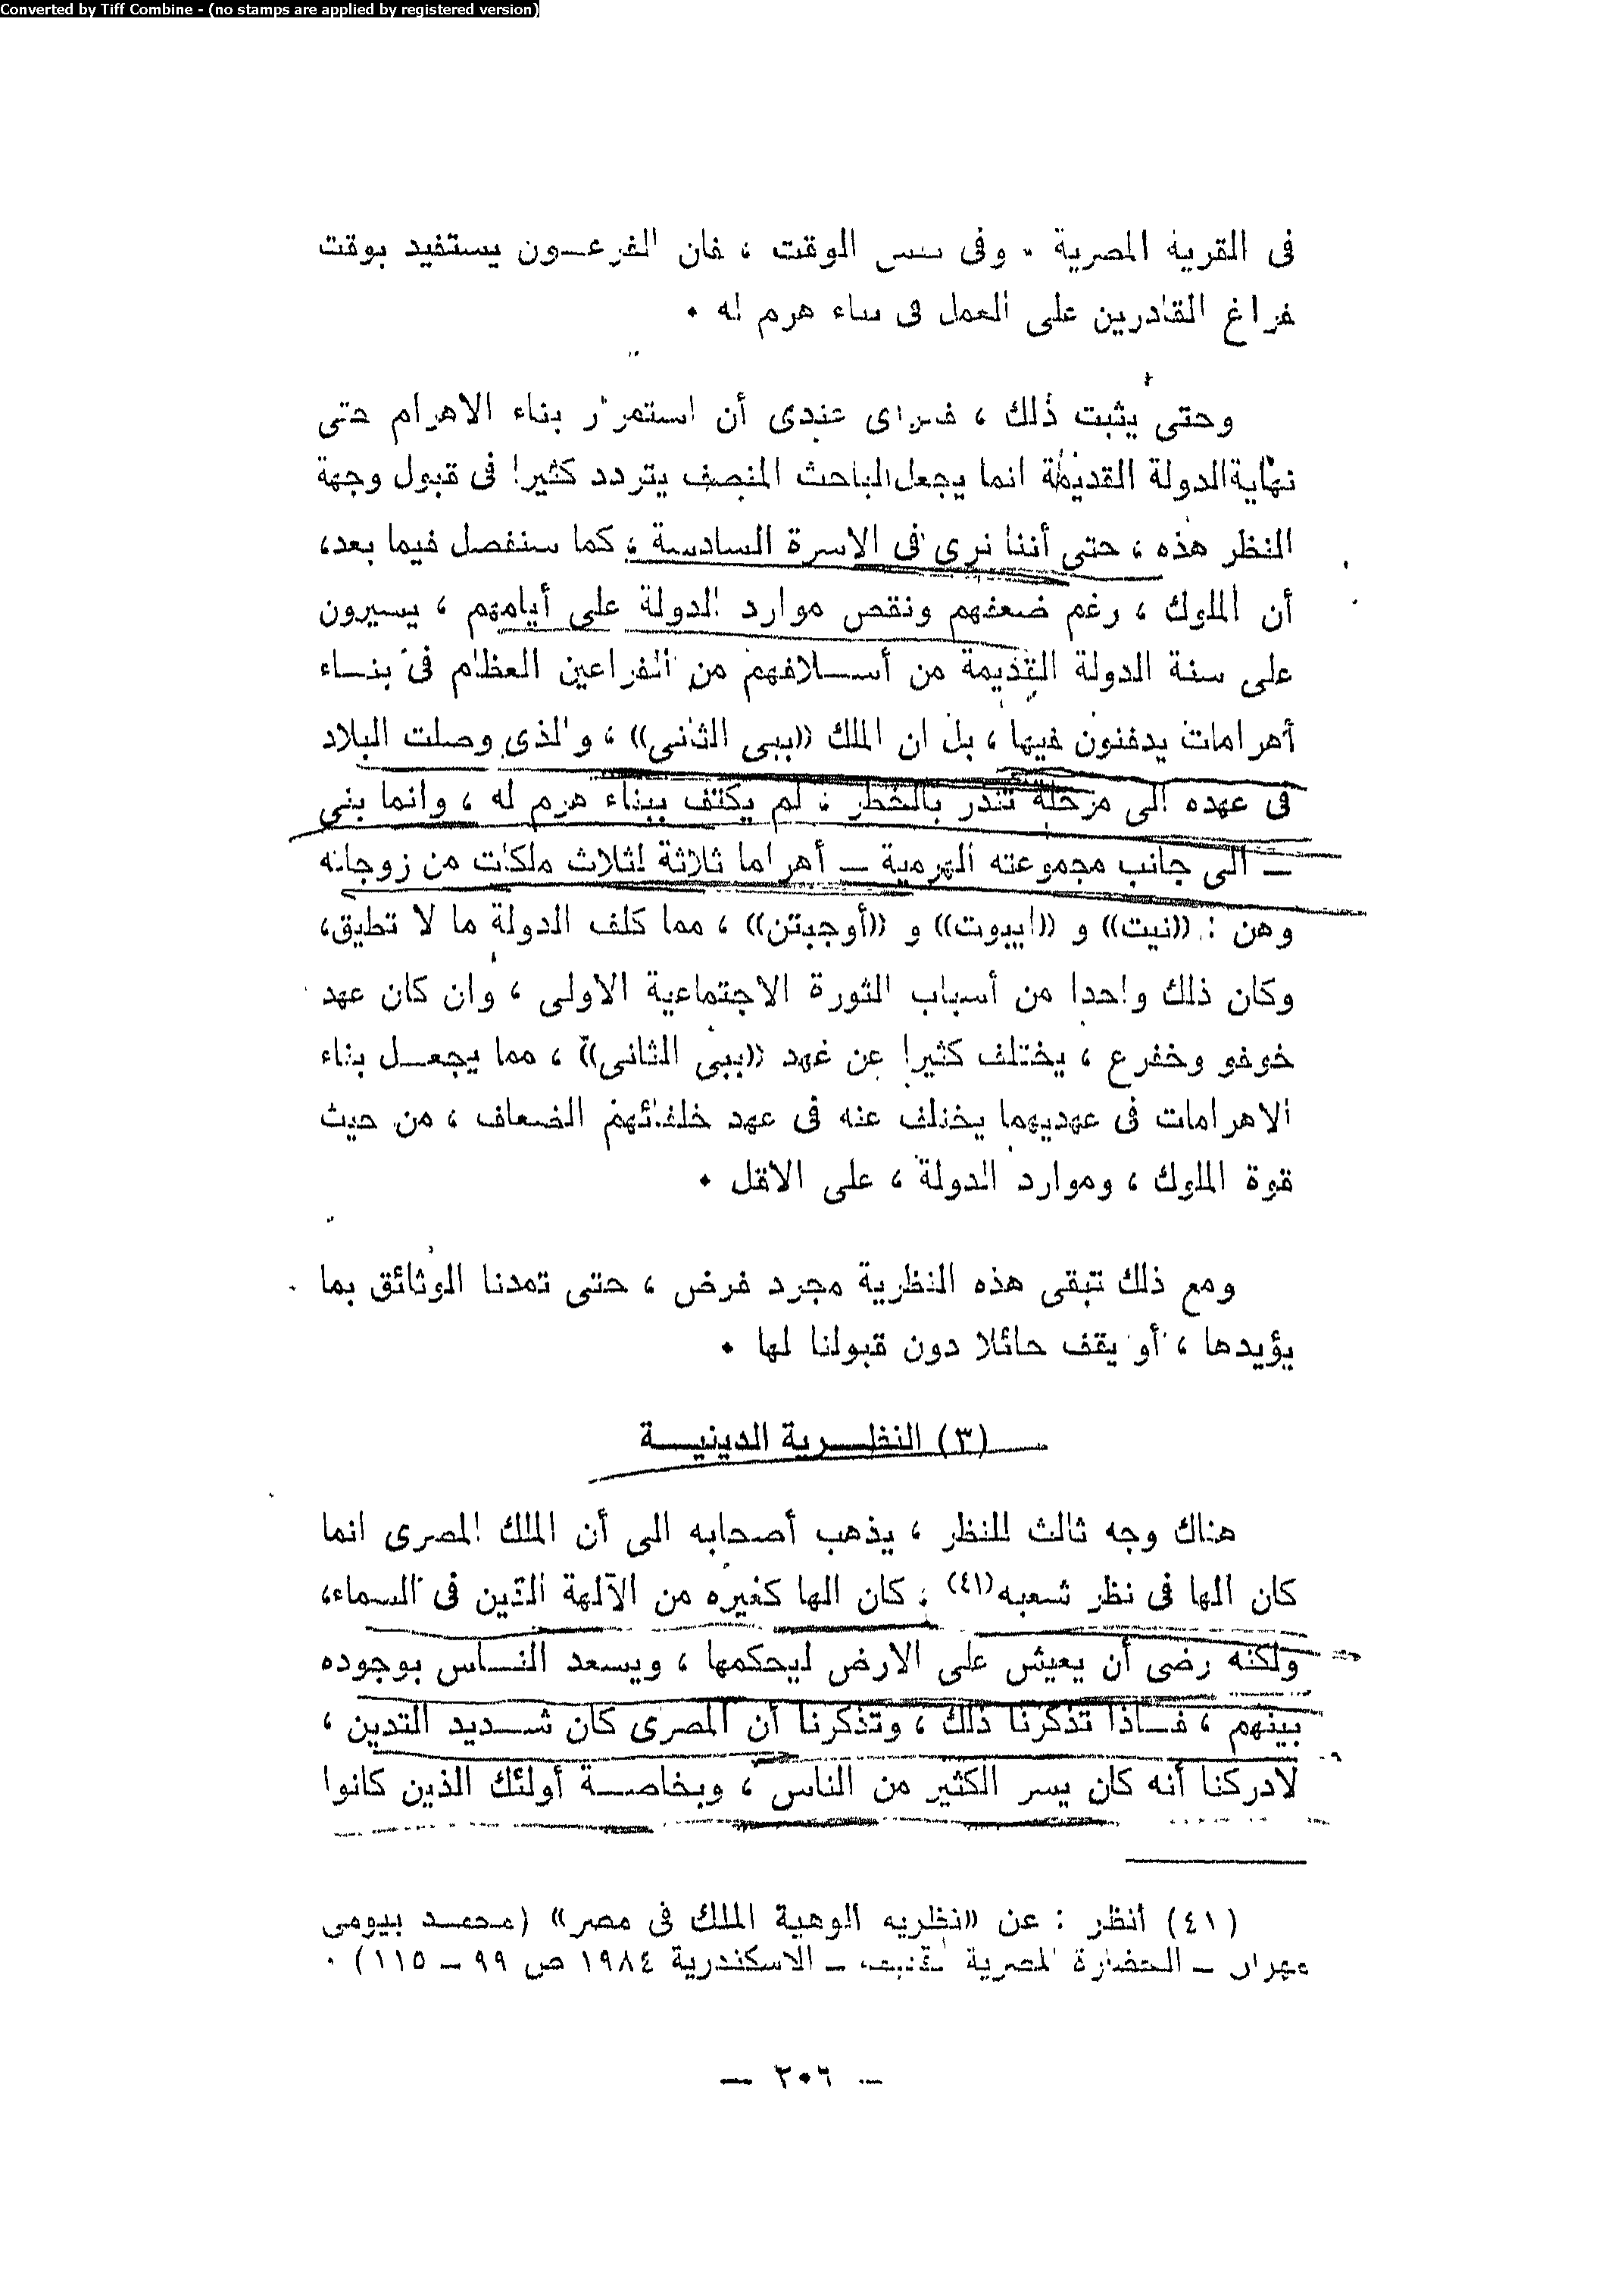 Converted by Tiff Combine - (no stamps are applied by registered version)
فى القرية المصرية . وفى نفس الوقت ، فان الفرعـون يستفيد بوقت
فراغ القادرين على العمل فى بناء هرم له .
وحتى يثبت ذلك ، عندى أن استمرار بناء الاهرام حتى
نهاية الدولة القديمة انما يجعل الباحث المنصف يتردد كثيرا فى قبول وجهة
النظر هذه ، حتى أننا نرى فى الاسرة السادسة ، كما سنفصل فيما بعد،
أن الملوك ، رغم ضعفهم ونقص موارد الدولة على أيامهم ، يسيرون
على سنة الدولة القديمة من أسـلافهم من الفراعين العظام فى بنـاء
أهرامات يدفنون فيها ، بل ان الملك ((بيى الثانى)) ، والذى وصلت البلاد
فى عهده الى مرحلة تنذر بالخطر ، لم يكتف ببناء هرم له ، وانما بنى
ـ الى جانب مجموعته الهرمية ـ أهراما ثلاثة لثلاث ملكات من زوجاته
وهن : ((نيت)) و ((ابيوت)) و ((أوجبتن)) ، مما كلف الدولة ما لا تطيق،
وكان ذلك واحدا من أسباب الثورة الاجتماعية الاولى ، وان كان عهد
خوفو وخفرع ، يختلف كثيرا عن عهد ((بيبى الثانى)) ، مما يجعـل بناء
الاهرامات فى عهديهما يختلف عنه فى عهد خلفائهم الضعاف ، من حيث
قوة الملوك ، وموارد الدولة ، على الاقل .
ومع ذلك تبقى هذه النظرية مجرد فرض ، حتى تمدنا الوثائق بما
يؤيدها ، أو يقف حائلا دون قبولنا لها .
(٣) النظـرية الدينيـة
هناك وجه ثالث للنظر ، يذهب أصحابه الى أن الملك المصرى انما
كان الها فى نظر شعبه(٤١) ، كان الها كغيره من الآلهة الذين فى السماء،
ولكنه رضى أن يعيش على الارض ليحكمها ، ويسعد النـاس بوجوده
بينهم ، فـاذا تذكرنا ذلك ، وتذكرنا أن المصرى كان شـديد التدين ،
لادركنا أنه كان يسر الكثير من الناس ، وبخاصـة أولئك الذين كانوا
(٤١) أنظر : عن ((نظريه الوهية الملك فى مصر)) (محمد بيومى
مهران ـ الحضارة المصرية القديمة ـ الاسكندرية ١٩٨٤ ص ٩٩ ـ ١١٥) .
ـ ٢٠٦ ـ